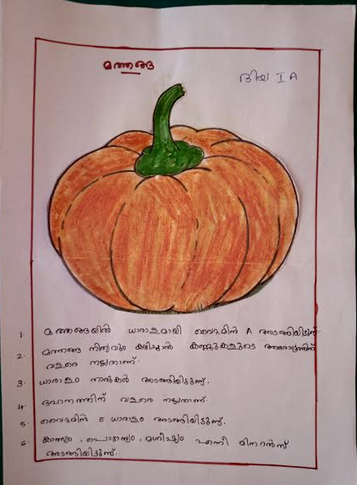 മത്തങ്ങ
ദിയ I A
1. മത്തങ്ങയിൽ ധാരാളമായി വൈറ്റമിൻ A അടങ്ങിയിട്ടുണ്ട്
2. മത്തങ്ങ നിത്യവും കഴിച്ചാൽ കണ്ണുകളുടെ ആരോഗ്യത്തിന്
വളരെ നല്ലതാണ്
3. ധാരാളം നാരുകൾ അടങ്ങിയിട്ടുണ്ട്.
4. ദഹനത്തിന് വളരെ നല്ലതാണ്
5. വൈറ്റമിൻ E ധാരാളം അടങ്ങിയിട്ടുണ്ട്.
6. കാത്സ്യം, പൊട്ടാസ്യം, മഗ്നീഷ്യം എന്നീ മിനറൽസ്
അടങ്ങിയിട്ടുണ്ട്.